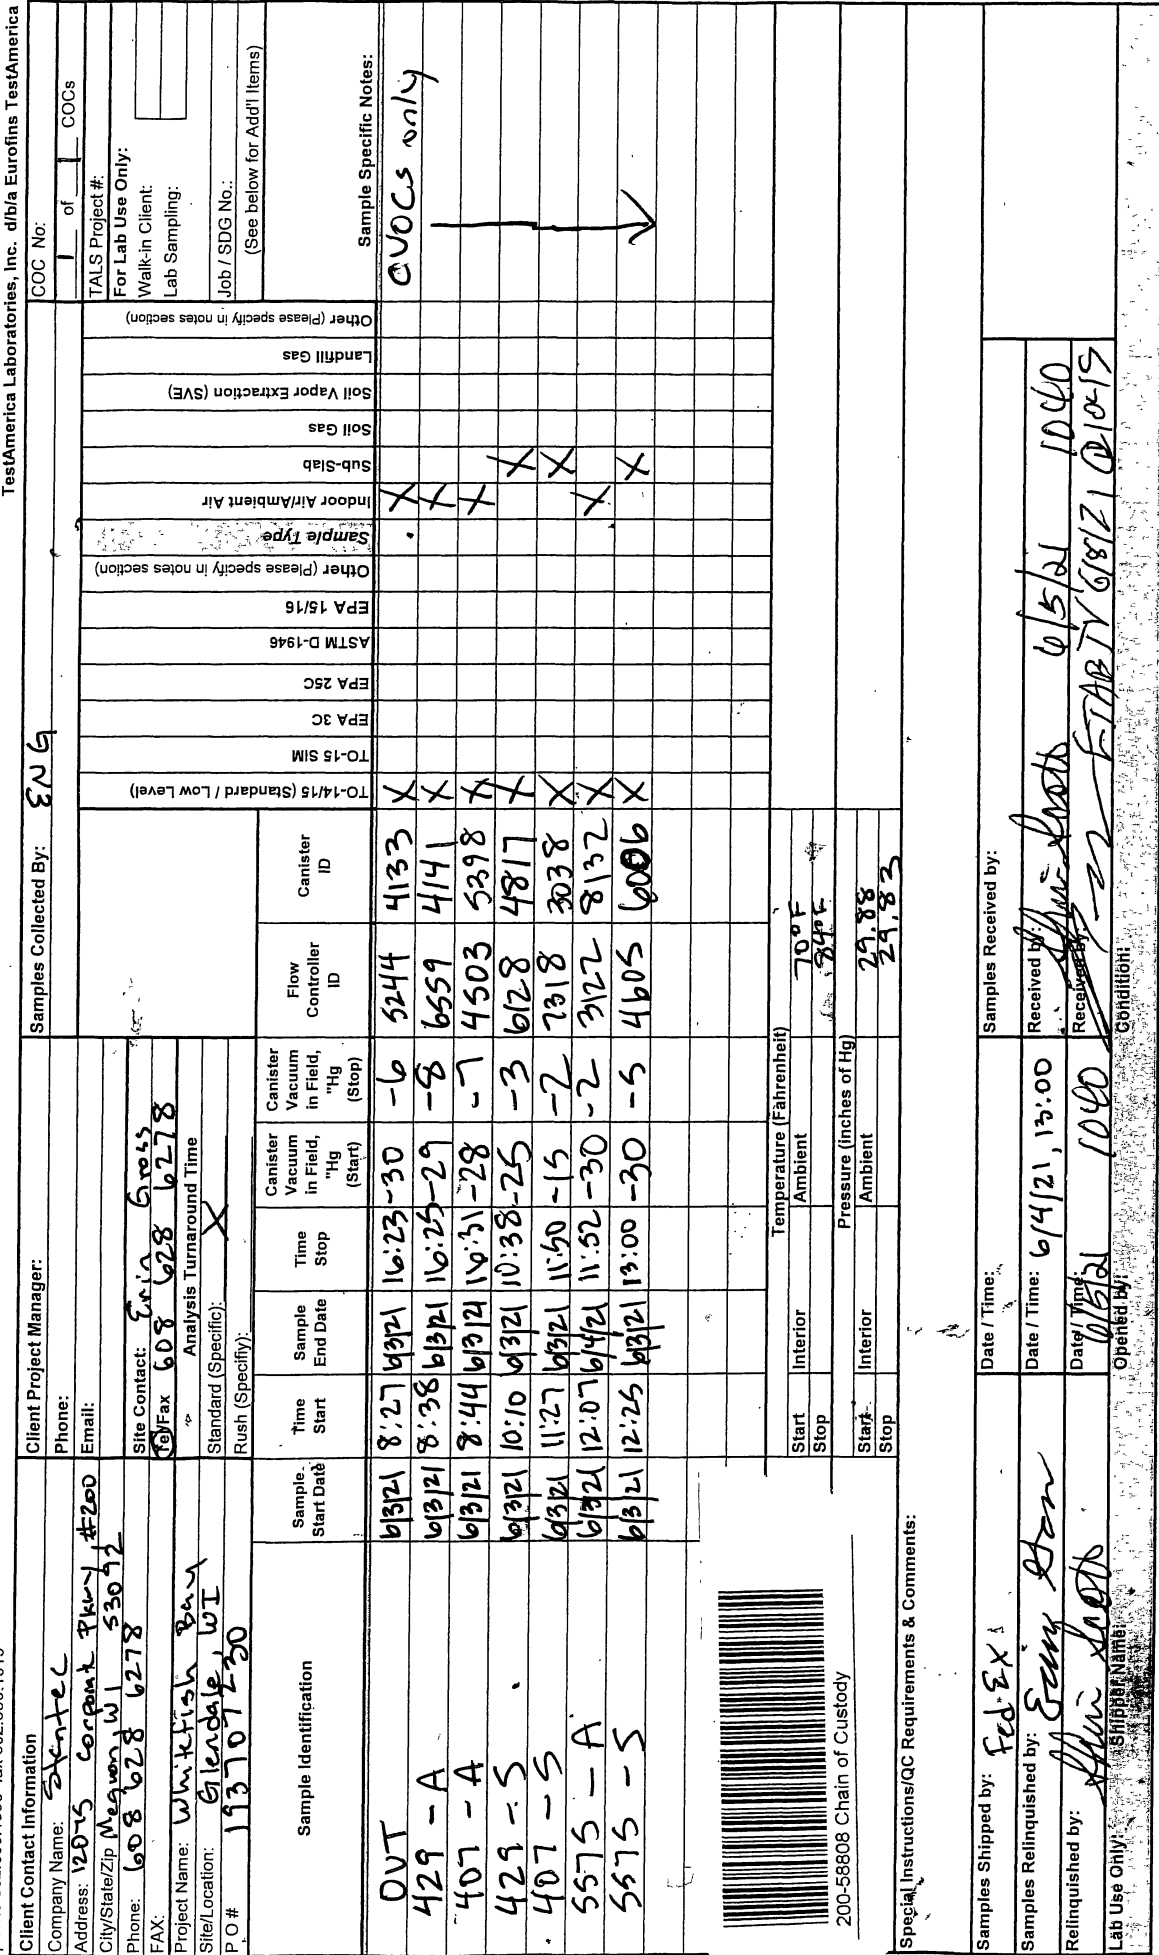 TestAmerica Laboratories, Inc. d/b/a Eurofins TestAmerica
Client Contact Information
Company Name: Stantec
Address: 12075 Corporate Pkwy, #200
City/State/Zip Mequon, WI 53092
Phone: 608 628 6278
FAX:
Project Name: Whitefish Bay
Site/Location: Glendale, WI
P O # 193707230
Client Project Manager:
Phone:
Email:
Site Contact: Erin Gross
Tel/Fax 608 628 6278
Analysis Turnaround Time
Standard (Specific): X
Rush (Specifiy):
Samples Collected By: ENG
COC No:
1 of 1 COCs
TALS Project #:
For Lab Use Only:
Walk-in Client:
Lab Sampling:
Job / SDG No.:
(See below for Add'l Items)
Sample Identification Sample Start Date Time Start Sample End Date Time Stop Canister Vacuum in Field, "Hg (Start) Canister Vacuum in Field, "Hg (Stop) Flow Controller ID Canister ID TO-14/15 (Standard / Low Level) TO-15 SIM EPA 3C EPA 25C ASTM D-1946 EPA 15/16 Other (Please specify in notes section) Sample Type Indoor Air/Ambient Air Sub-Slab Soil Gas Soil Vapor Extraction (SVE) Landfill Gas Other (Please specify in notes section) Sample Specific Notes:
OUT 6/3/21 8:27 6/3/21 16:23 -30 -6 5244 4133 X X CVOCs only
429 - A 6/3/21 8:38 6/3/21 16:25 -29 -8 6559 4141 X X
407 - A 6/3/21 8:44 6/3/21 16:31 -28 -7 4503 5298 X X
429 - S 6/3/21 10:10 6/3/21 10:38 -25 -3 6128 4817 X X
407 - S 6/3/21 11:27 6/3/21 11:50 -15 -2 7318 3038 X X
5575 - A 6/3/21 12:07 6/4/21 11:52 -30 -2 3122 8132 X X
5575 - S 6/3/21 12:25 6/3/21 13:00 -30 -5 4605 6006 X X
Temperature (Fahrenheit)
Interior Ambient
Start 70°F
Stop 84°F
Pressure (inches of Hg)
Interior Ambient
Start 29.88
Stop 29.83
200-58808 Chain of Custody
Special Instructions/QC Requirements & Comments:
Samples Shipped by: Fed Ex Date / Time: Samples Received by:
Samples Relinquished by: Date / Time: 6/4/21, 13:00 Received by: 6/5/21 1040
Relinquished by: Date / Time: 6/5/21 1040 Received by: ETAB TV 6/8/21 @ 1015
Lab Use Only: Shipper Name: Opened by: Condition: